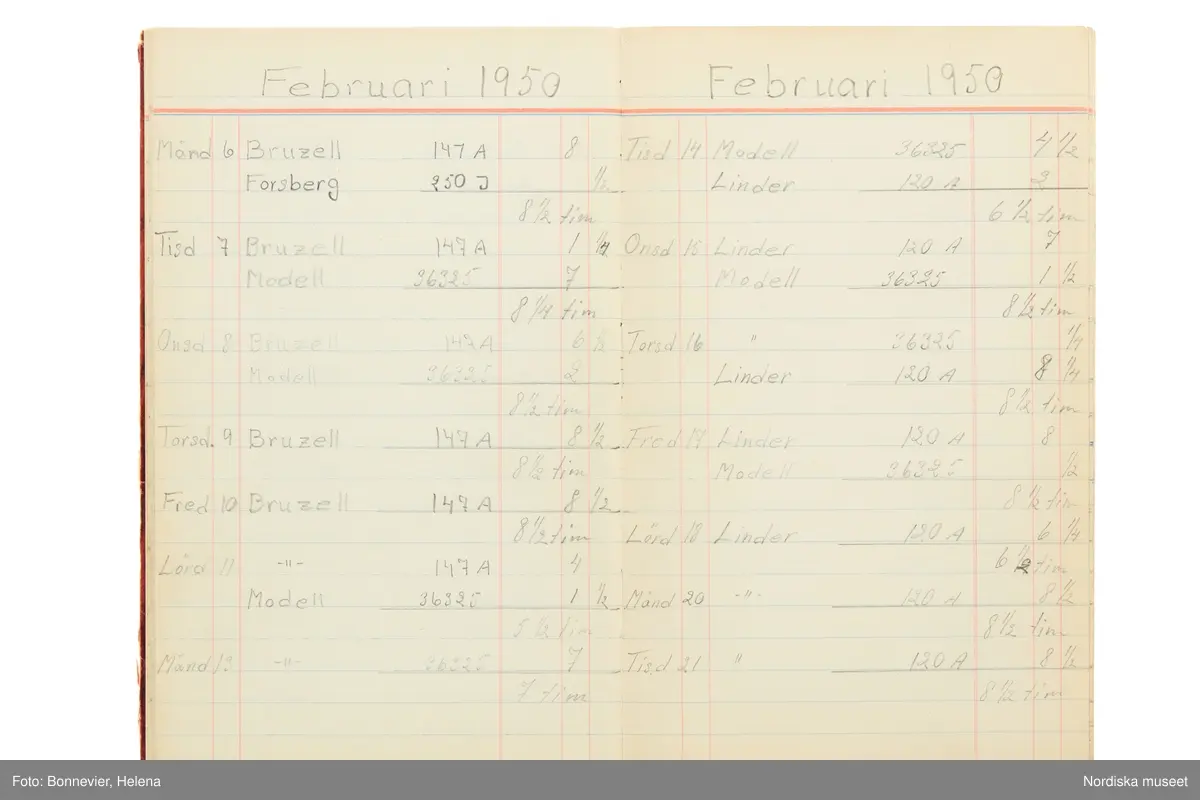 Februari 1950
Månd 6 Bruzell 147 A 8
Forsberg 250 J 1/2
8 1/2 tim
Tisd 7 Bruzell 147 A 1 1/4
Modell 36325 7
8 1/4 tim
Onsd 8 Bruzell 147 A 6 1/2
Modell 36325 2
8 1/2 tim
Torsd. 9 Bruzell 147 A 8 1/2
8 1/2 tim
Fred 10 Bruzell 147 A 8 1/2
8 1/2 tim
Lörd 11 -"- 147 A 4
Modell 36325 1 1/2
5 1/2 tim
Månd 13 -"- 36325 7
7 tim
Februari 1950
Tisd 14 Modell 36325 4 1/2
Linder 120 A 2
6 1/2 tim
Onsd 15 Linder 120 A 7
Modell 36325 1 1/2
8 1/2 tim
Torsd 16 " 36325 1/4
Linder 120 A 8 1/4
8 1/2 tim
Fred 17 Linder 120 A 8
Modell 36325 1/2
8 1/2 tim
Lörd 18 Linder 120 A 6 1/4
6 1/2 tim
Månd 20 -"- 120 A 8 1/2
8 1/2 tim
Tisd 21 " 120 A 8 1/2
8 1/2 tim
Foto: Bonnevier, Helena
Nordiska museet